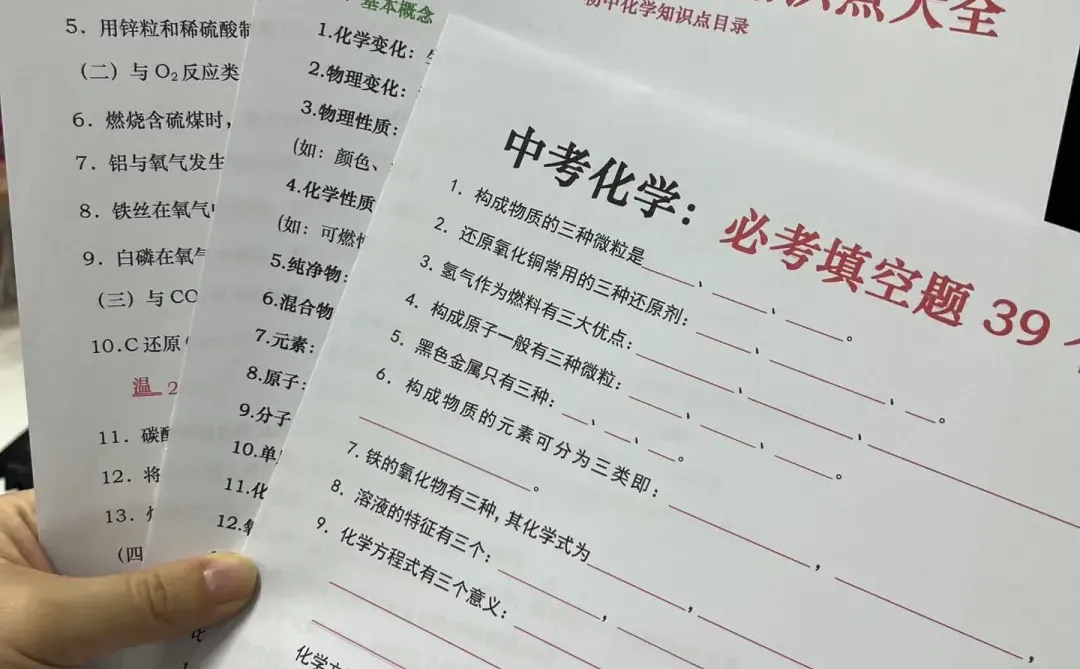 5．用锌粒和稀硫酸制
（二）与 O₂ 反应类
6．燃烧含硫煤时，
7．铝与氧气发生
8．铁丝在氧气中
9．白磷在氧气
（三）与 CO
10.C 还原
温 2
11．碳酸
12．将
13．
（四
基本概念
1.化学变化：
2.物理变化：
3.物理性质：
(如：颜色、
4.化学性质
(如：可燃性
5.纯净物：
6.混合物
7.元素：
8.原子：
9.分子
10.单
11.化
12.氧
识点大全
初中化学知识点目录
中考化学：必考填空题 39
1．构成物质的三种微粒是____、____、____。
2．还原氧化铜常用的三种还原剂：____、____、____。
3．氢气作为燃料有三大优点：____、____、____
4．构成原子一般有三种微粒：____、____、____。
5．黑色金属只有三种：____、____、____。
6．构成物质的元素可分为三类即：____，____，
____。
7．铁的氧化物有三种，其化学式为____，
8．溶液的特征有三个：____，
9．化学方程式有三个意义：
化学方